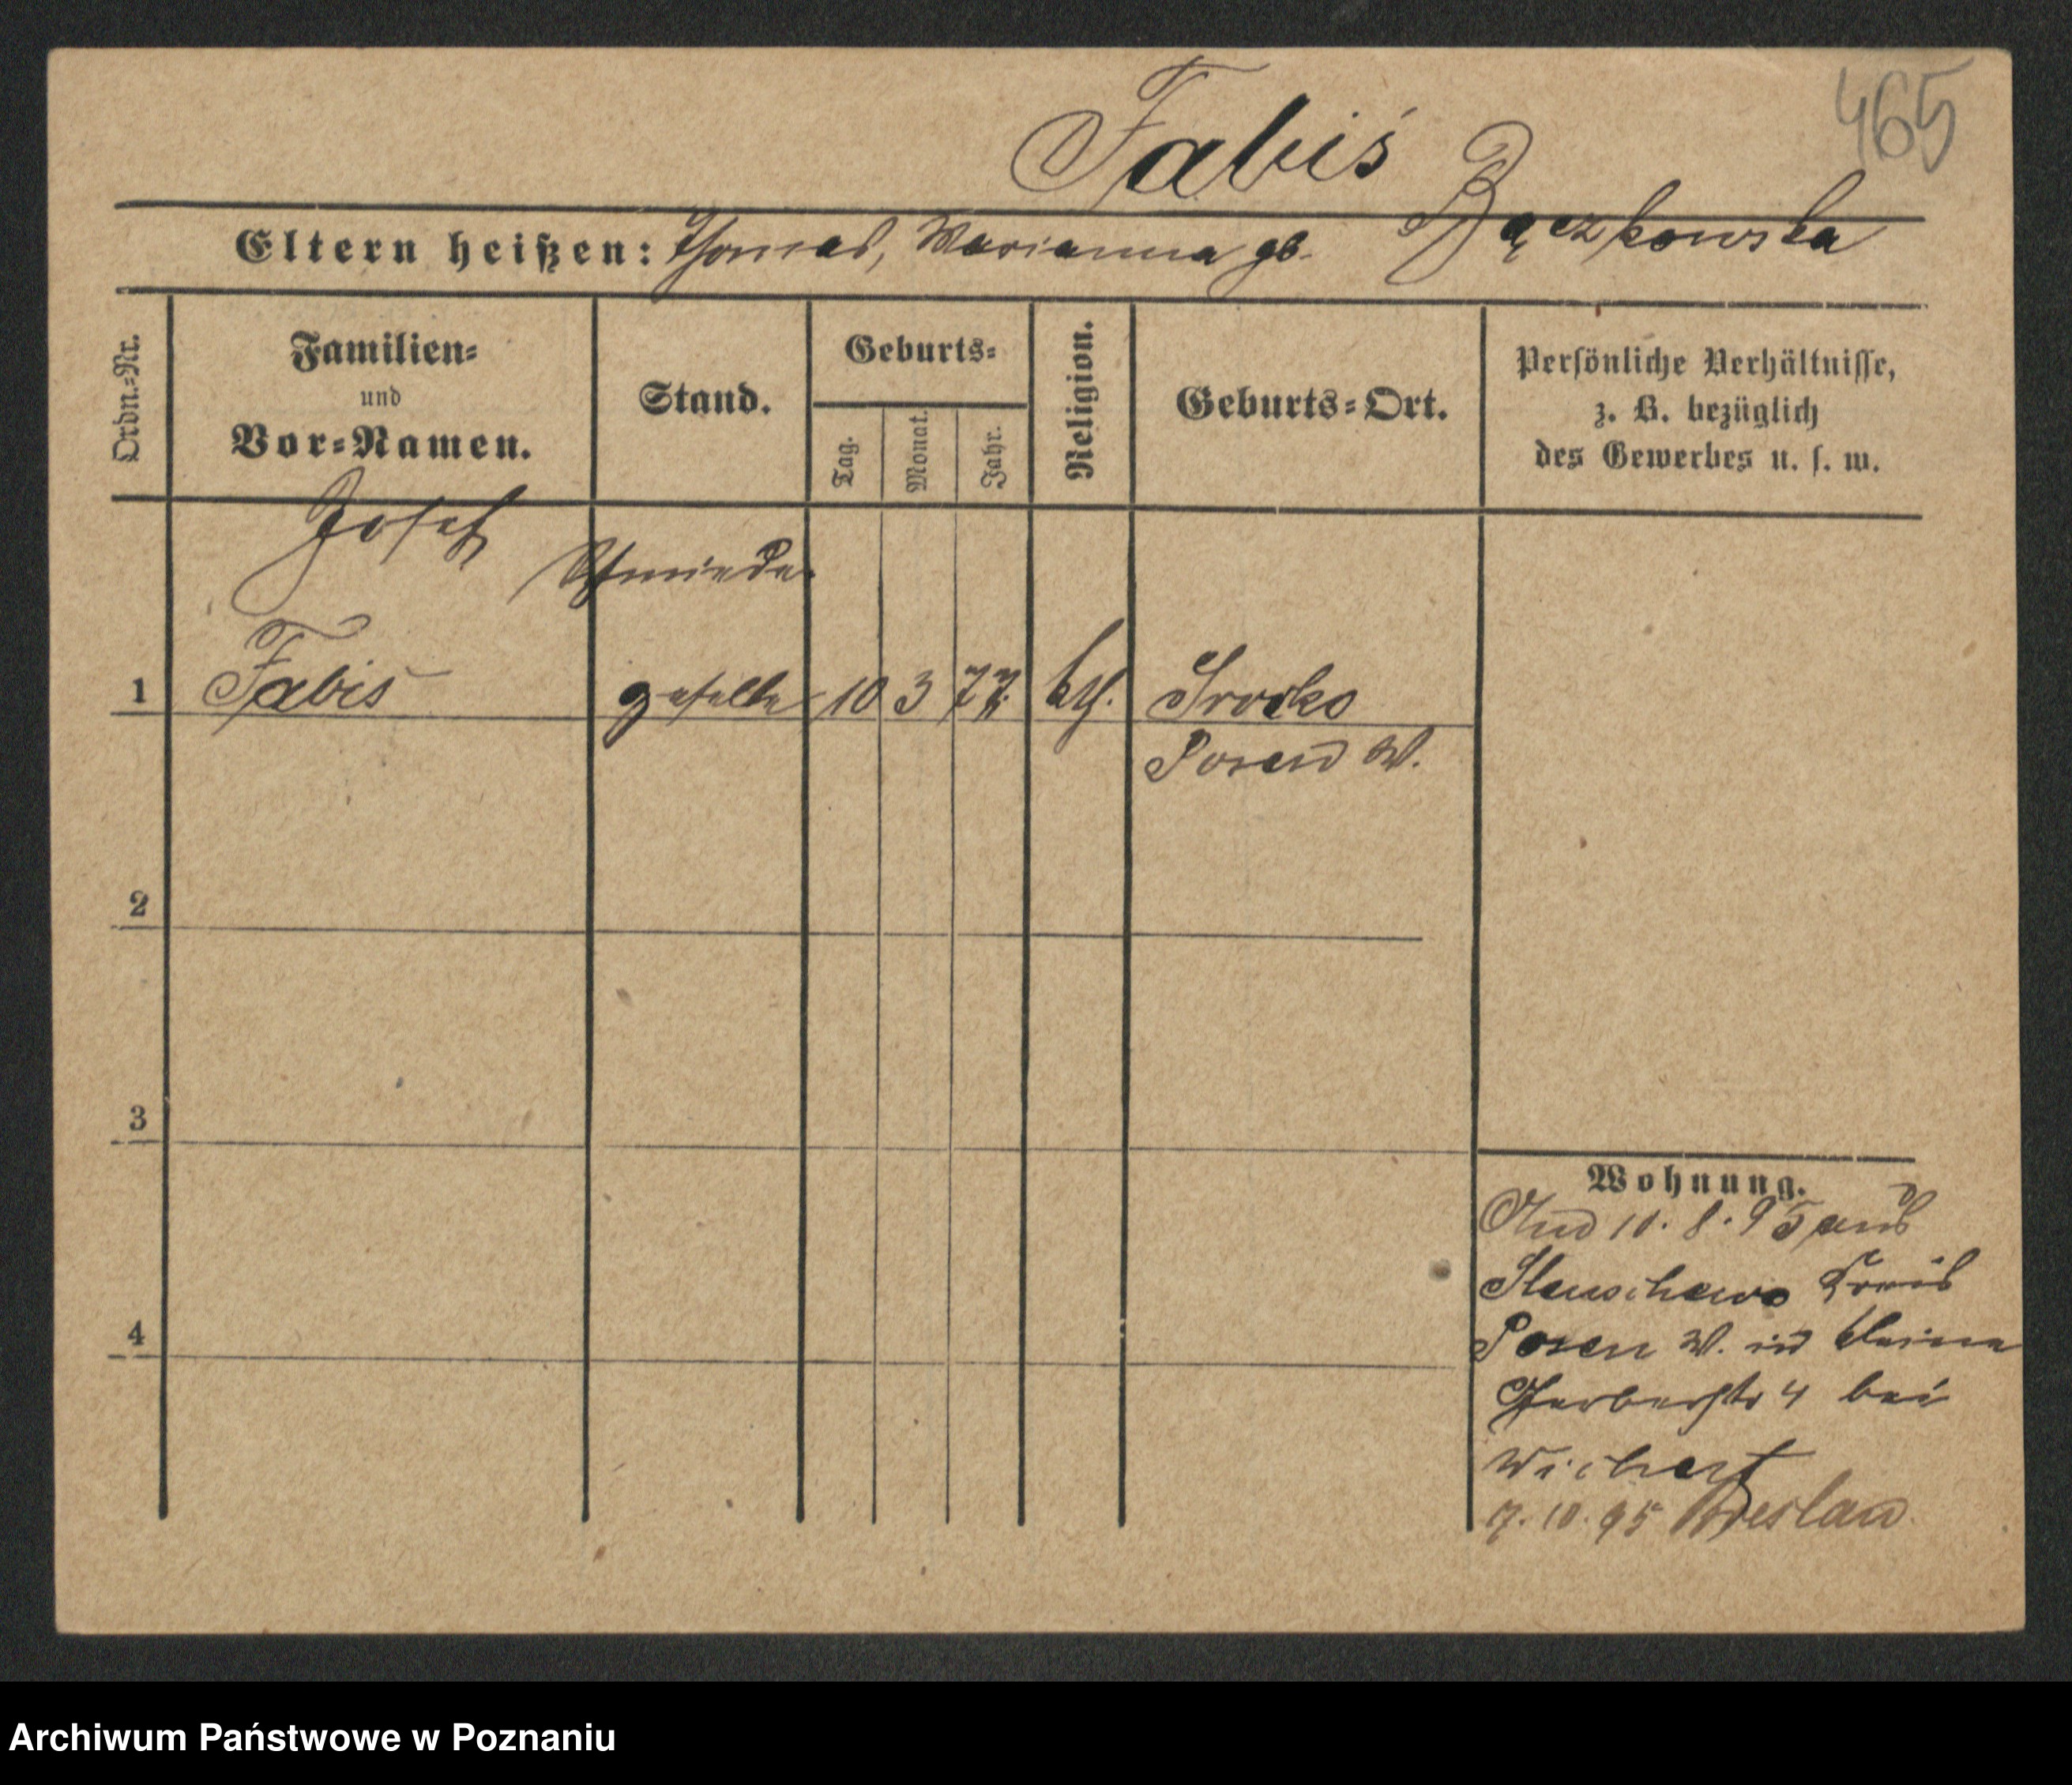 465
Fabiś
Eltern heißen: Thomas, Marianna gb. Bączkowska
Ordn.=Nr.
Familien=
und
Vor=Namen.
Stand.
Geburts=
Tag.
Monat.
Jahr.
Religion.
Geburts=Ort.
Persönliche Verhältnisse,
z. B. bezüglich
des Gewerbes u. s. w.
Josef
Schmiede
1 Fabiś geselle 10 3 77. kth. Srocko
Posen W.
2
3
4
Wohnung.
10. 8. 95 aus
Kreis
Posen W. in kleine
Gerberstr 4 bei
Wichert
7. 10. 95 Breslau
Archiwum Państwowe w Poznaniu